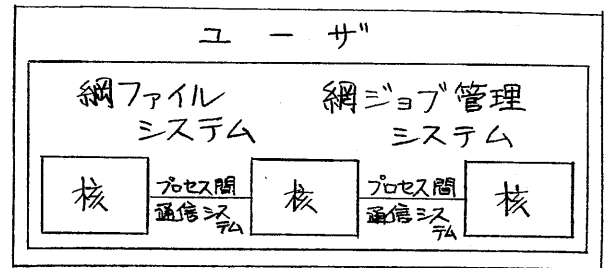 ユーザ
網ファイル
システム
網ジョブ管理
システム
核
プロセス間
通信シス
テム
核
プロセス間
通信シス
テム
核